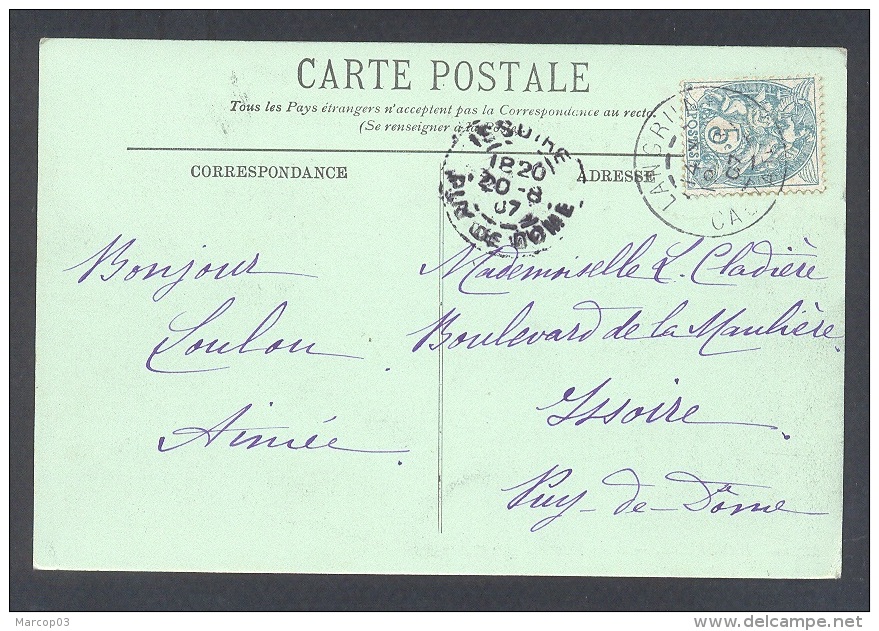 CARTE POSTALE
Tous les Pays étrangers n'acceptent pas la Correspondance au recto.
(Se renseigner à la Poste)
CORRESPONDANCE
ADRESSE
ISSOIRE
18 20
20 - 8
07
PUY DE DOME
LANGRU
CAL
5
POSTES
Bonjour
Loulou
Aimée.
Mademoiselle L. Cladière
Boulevard de la Manlière.
Issoire.
Puy-de-Dôme
Marcop03
www.delcampe.net